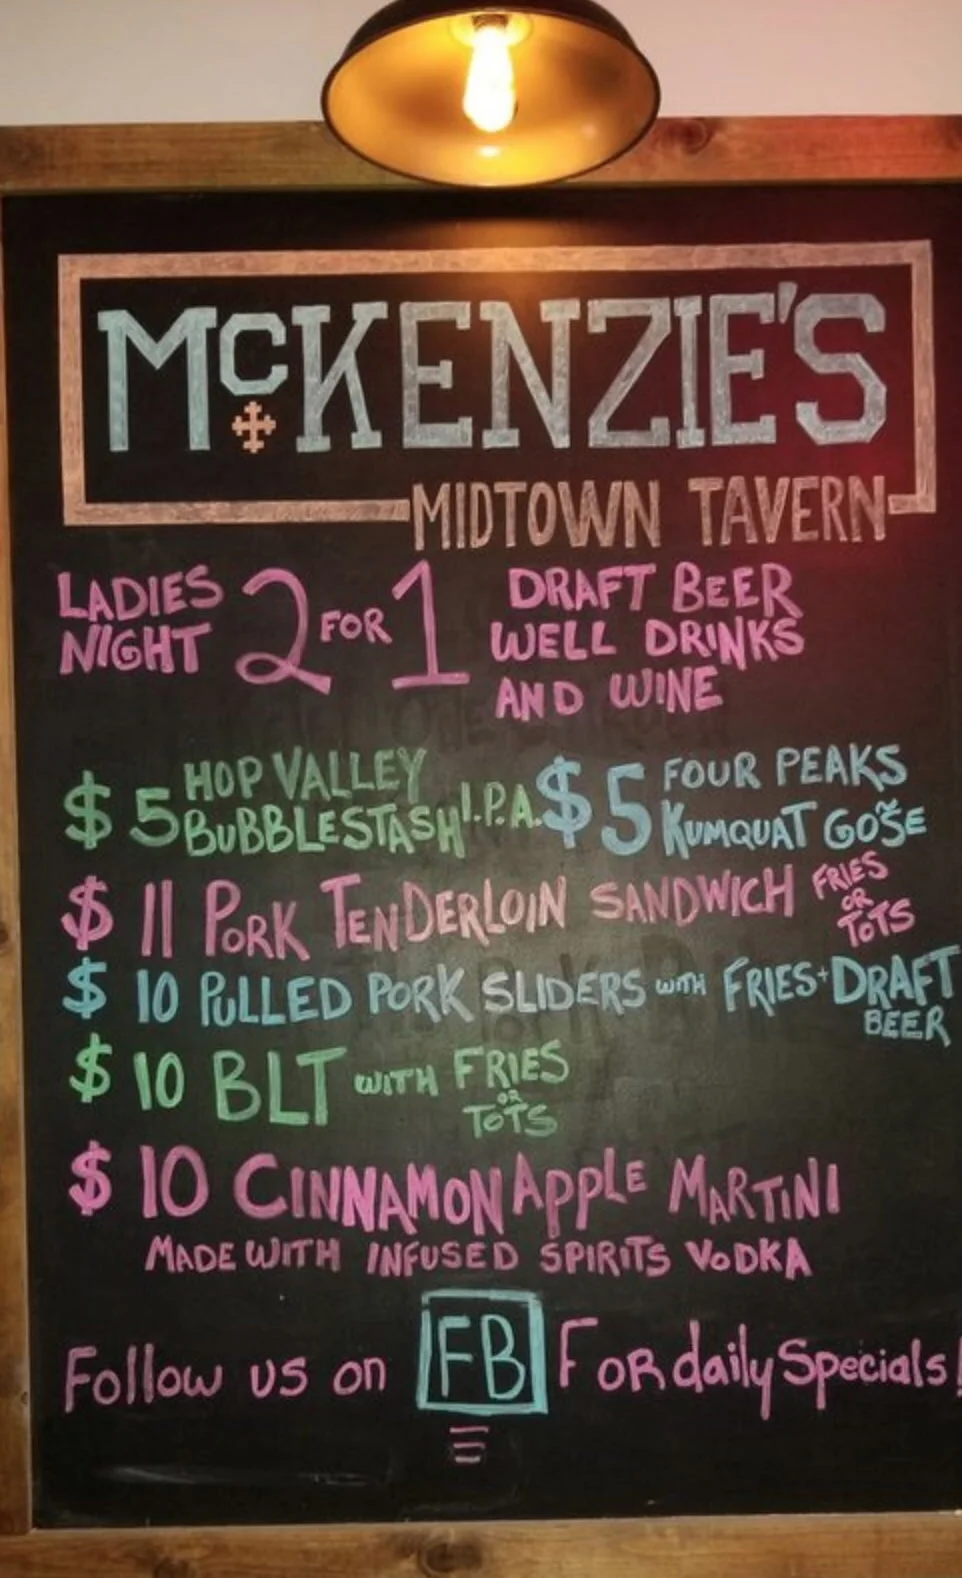 McKENZIE'S
MIDTOWN TAVERN
LADIES NIGHT 2 FOR 1 DRAFT BEER WELL DRINKS AND WINE
$5 HOP VALLEY BUBBLESTASH I.P.A.
$5 FOUR PEAKS KUMQUAT GOSE
$11 PORK TENDERLOIN SANDWICH FRIES OR TOTS
$10 PULLED PORK SLIDERS WITH FRIES + DRAFT BEER
$10 BLT WITH FRIES OR TOTS
$10 CINNAMON APPLE MARTINI
MADE WITH INFUSED SPIRITS VODKA
Follow us on FB FOR daily Specials!